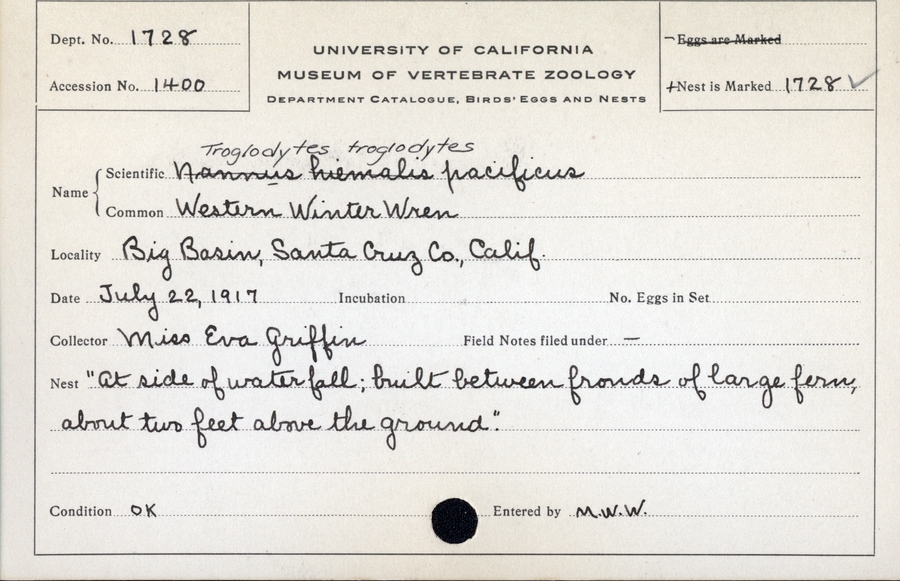 Dept. No. 1728
Accession No. 1400
UNIVERSITY OF CALIFORNIA
MUSEUM OF VERTEBRATE ZOOLOGY
DEPARTMENT CATALOGUE, BIRDS' EGGS AND NESTS
– Eggs are Marked
+ Nest is Marked 1728 ✓
Troglodytes troglodytes
Name { Scientific Nannus hiemalis pacificus
Common Western Winter Wren
Locality Big Basin, Santa Cruz Co., Calif.
Date July 22, 1917 Incubation No. Eggs in Set
Collector Miss Eva Griffin Field Notes filed under —
Nest "At side of waterfall; built between fronds of large fern,
about two feet above the ground".
Condition OK Entered by M.W.W.